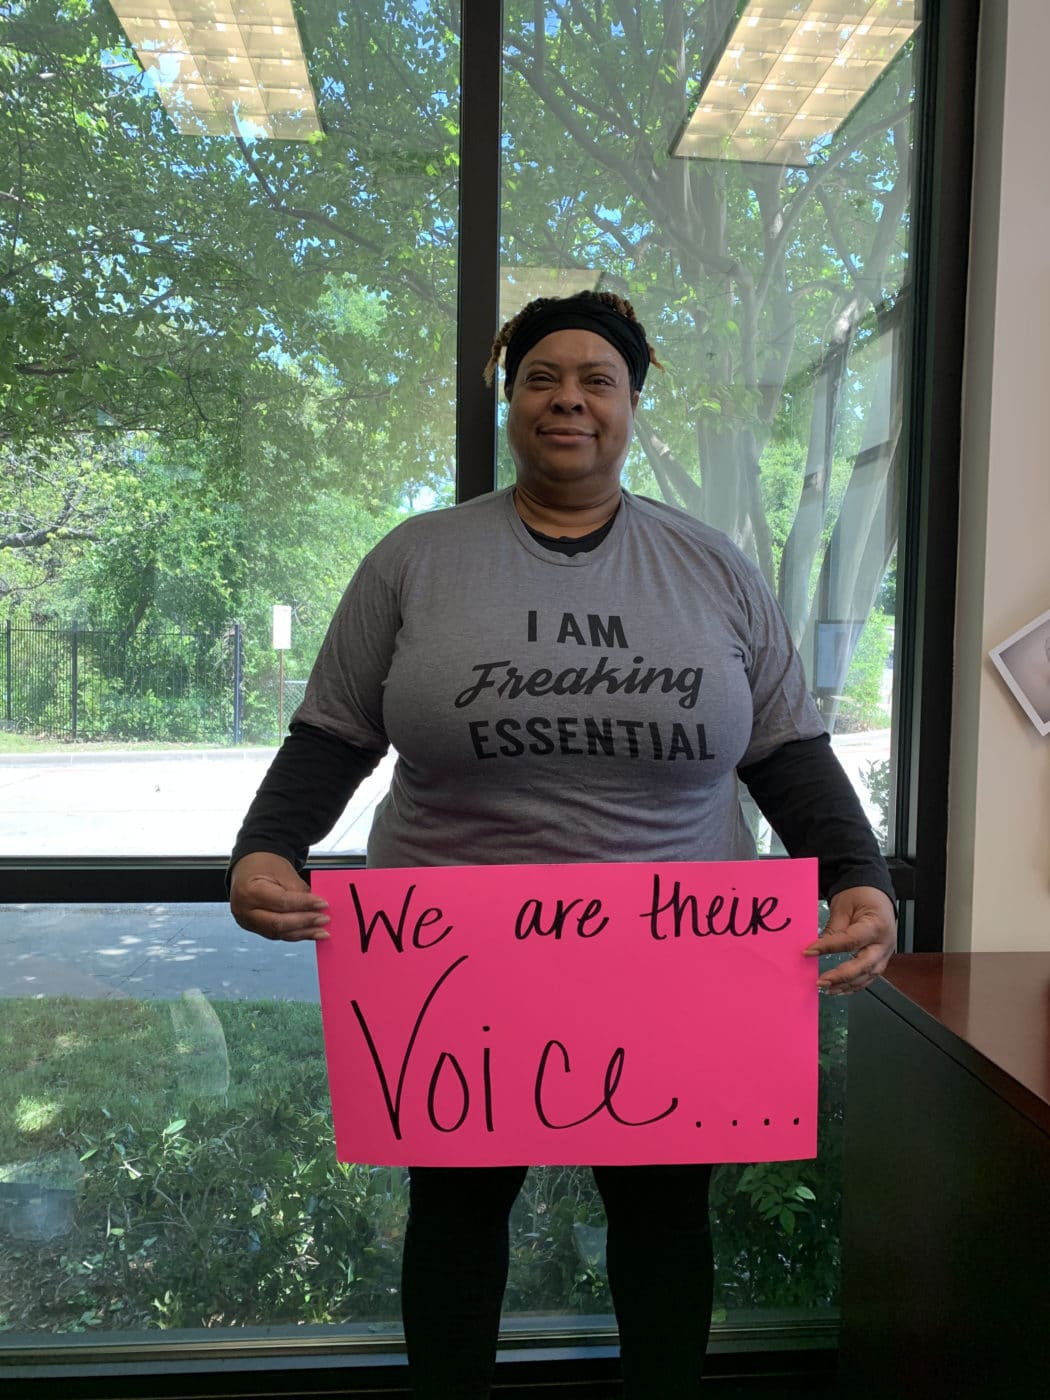 I AM
Freaking
ESSENTIAL
We are their
Voice....